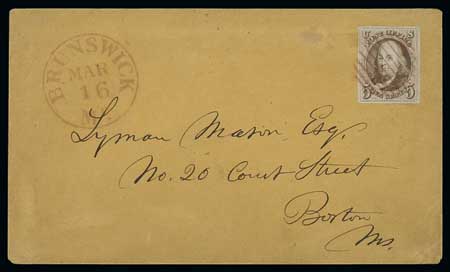 BRUNSWICK
MAR
16
Me.
5 5
Lyman Mason Esq.
No. 20 Court Street
Boston
Ms.